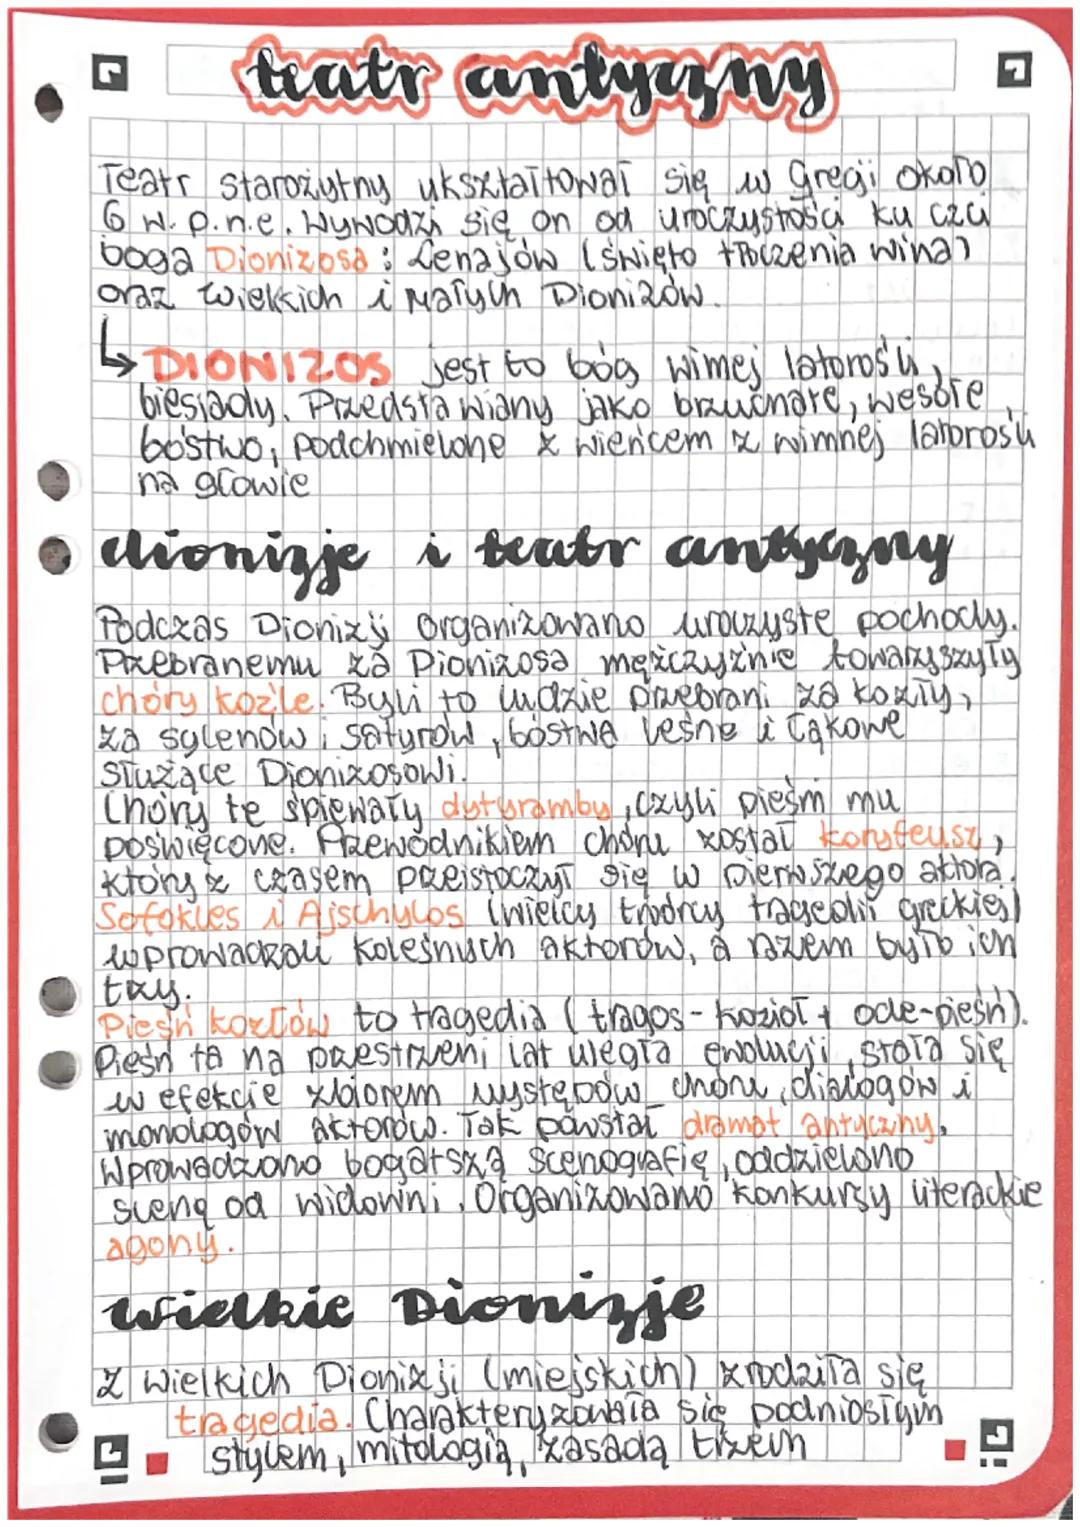 teatr antyczny
Teatr starożytny ukształtował się w Grecji około
6 w. p.n.e. Wywodzi się on od uroczystości ku czci
boga Dionizosa : Lenajów (święto tłoczenia wina)
oraz Wielkich i Małych Dionizów.
↳ DIONIZOS jest to bóg winnej latorośli,
biesiady. Przedstawiany jako brzuchate, wesołe
bóstwo, podchmielone z wieńcem z winnej latorośli
na głowie
dionizje i teatr antyczny
Podczas Dionizji organizowano uroczyste pochody.
Przebranemu za Dionizosa mężczyźnie towarzyszyły
chóry koźle. Byli to ludzie przebrani za kozły,
za sylenów i satyrów, bóstwa leśne i łąkowe
służące Dionizosowi.
Chóry te śpiewały dytyramby, czyli pieśni mu
poświęcone. Przewodnikiem chóru został koryfeusz,
który z czasem przeistoczył się w pierwszego aktora.
Sofokles i Ajschylos (wielcy twórcy tragedii greckiej)
wprowadzali kolejnych aktorów, a razem było ich
trzy.
Pieśń kozłów to tragedia ( tragos - kozioł + ode-pieśń).
Pieśń ta na przestrzeni lat uległa ewolucji, stała się
w efekcie zbiorem występów chóru, dialogów i
monologów aktorów. Tak powstał dramat antyczny.
Wprowadzono bogatszą scenografię, oddzielono
scenę od widowni. Organizowano konkursy literackie
agony.
wielkie Dionizje
Z Wielkich Dionizji (miejskich) zrodziła się
tragedia. Charakteryzowała się podniosłym
stylem, mitologią, zasadą trzech